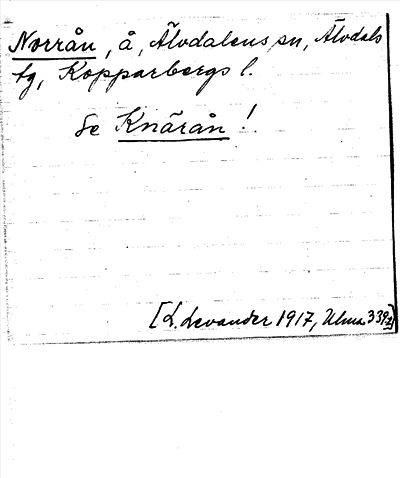 Norrån, å, Älvdalens sn, Älvdals
tg, Kopparbergs l.
Se Knärån!
[L. Levander 1917, Ulma 339: